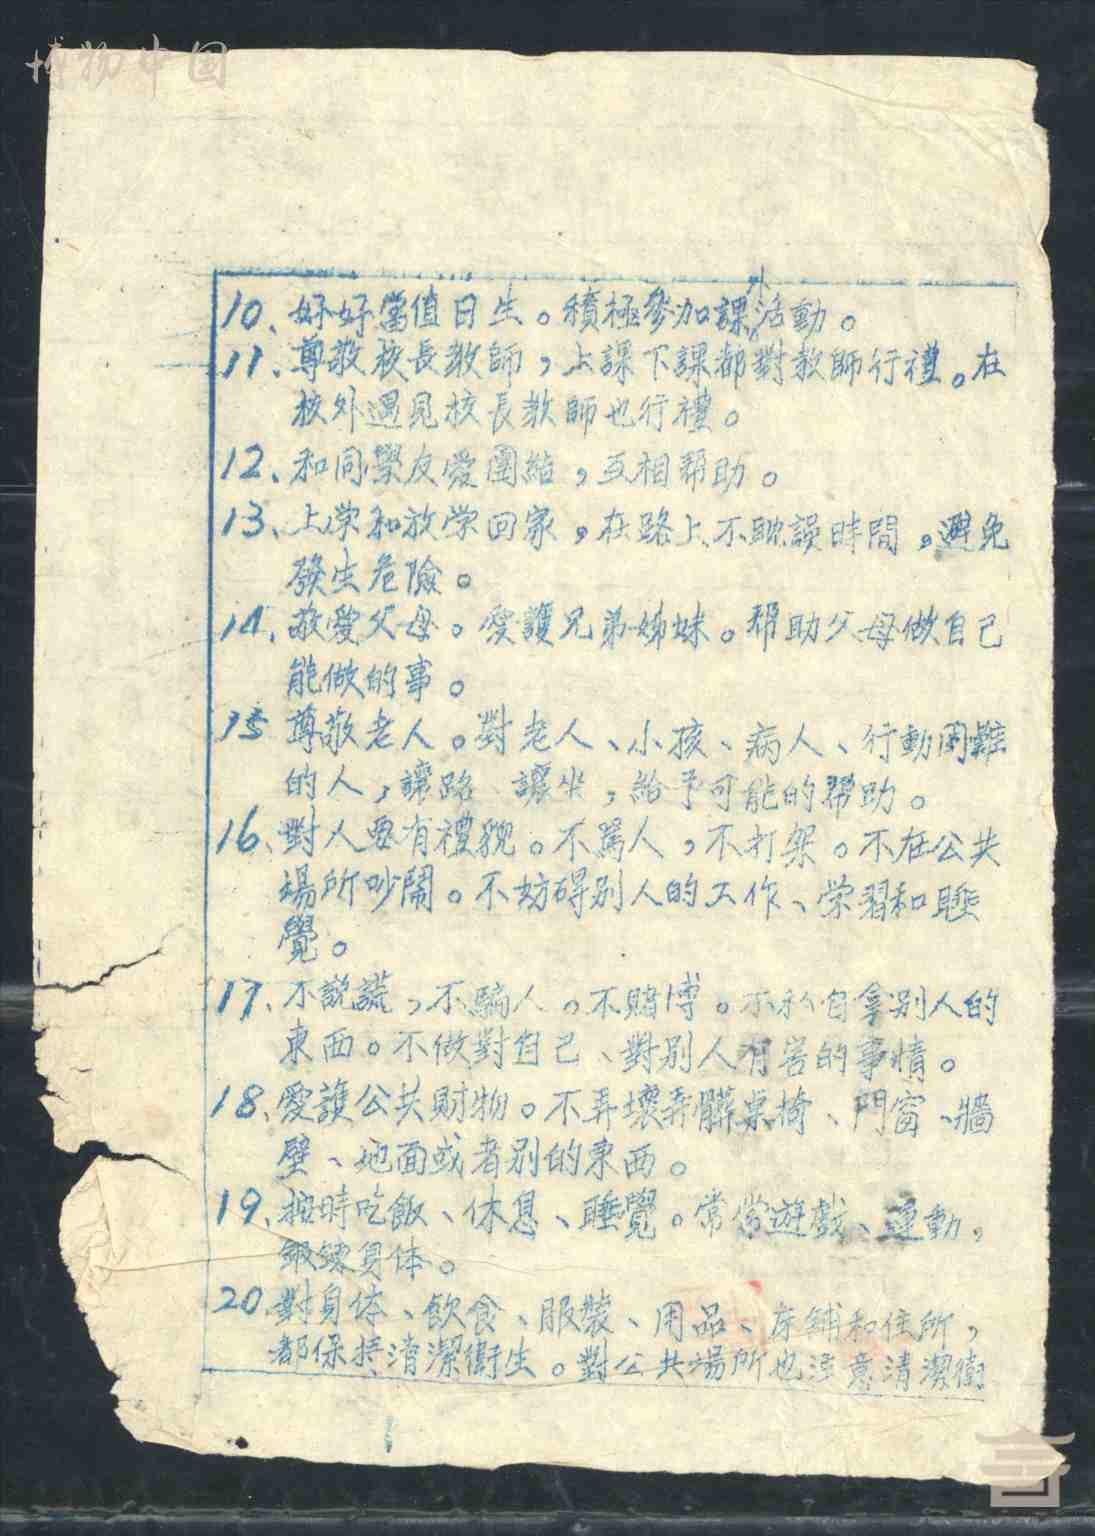 博物中国
10、好好當值日生。積極參加課外活動。
11、尊敬校長教師，上課下課都對教師行禮。在
校外遇見校長教師也行禮。
12、和同學友愛團結，互相帮助。
13、上学和放学回家，在路上不躭誤時間，避免
發生危險。
14、敬愛父母。愛護兄弟姊妹。帮助父母做自己
能做的事。
15 尊敬老人。對老人、小孩、病人、行動困難
的人，讓路 讓坐，給予可能的帮助。
16、對人要有禮貌。不罵人，不打架。不在公共
場所吵鬧。不妨碍别人的工作、学習和睡
覺。
17、不說謊，不騙人。不賭博。不私自拿别人的
東西。不做對自己、對别人有害的事情。
18、愛護公共財物。不弄壞弄髒桌椅、門窗、牆
壁、地面或者别的東西。
19、按時吃飯、休息、睡覺。常常遊戲、運動，
鍛鍊身体。
20、對身体、飲食、服裝、用品、床鋪和住所，
都保持清潔衛生。對公共場所也注意清潔衛